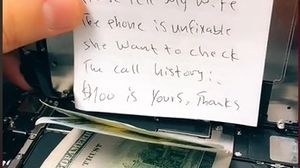 tell my wife
The phone is unfixable
she want to check
The call history!
$100 is Yours, Thanks
TRUST